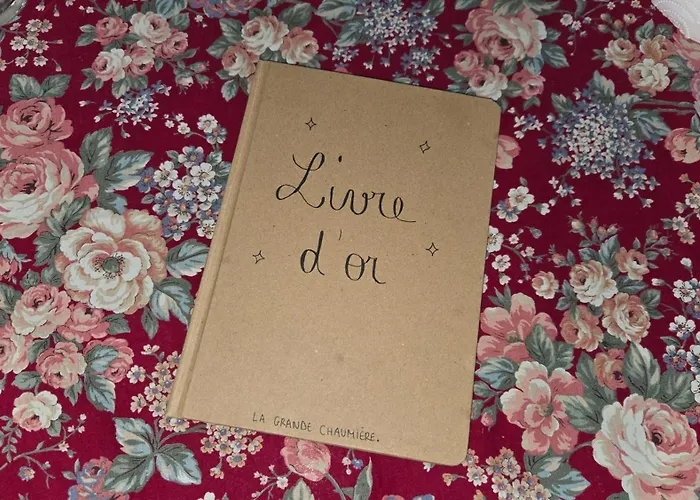 Livre
d'or
LA GRANDE CHAUMIÈRE.